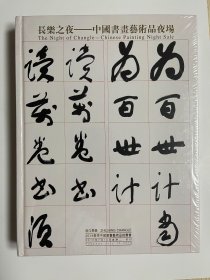 長樂之夜——中國書畫藝術品夜場
The Night of Changle—Chinese Painting Night Sale
為百世計當
為百世計
讀萬卷書
讀萬卷書須
ZHEJIANG CHANGLE